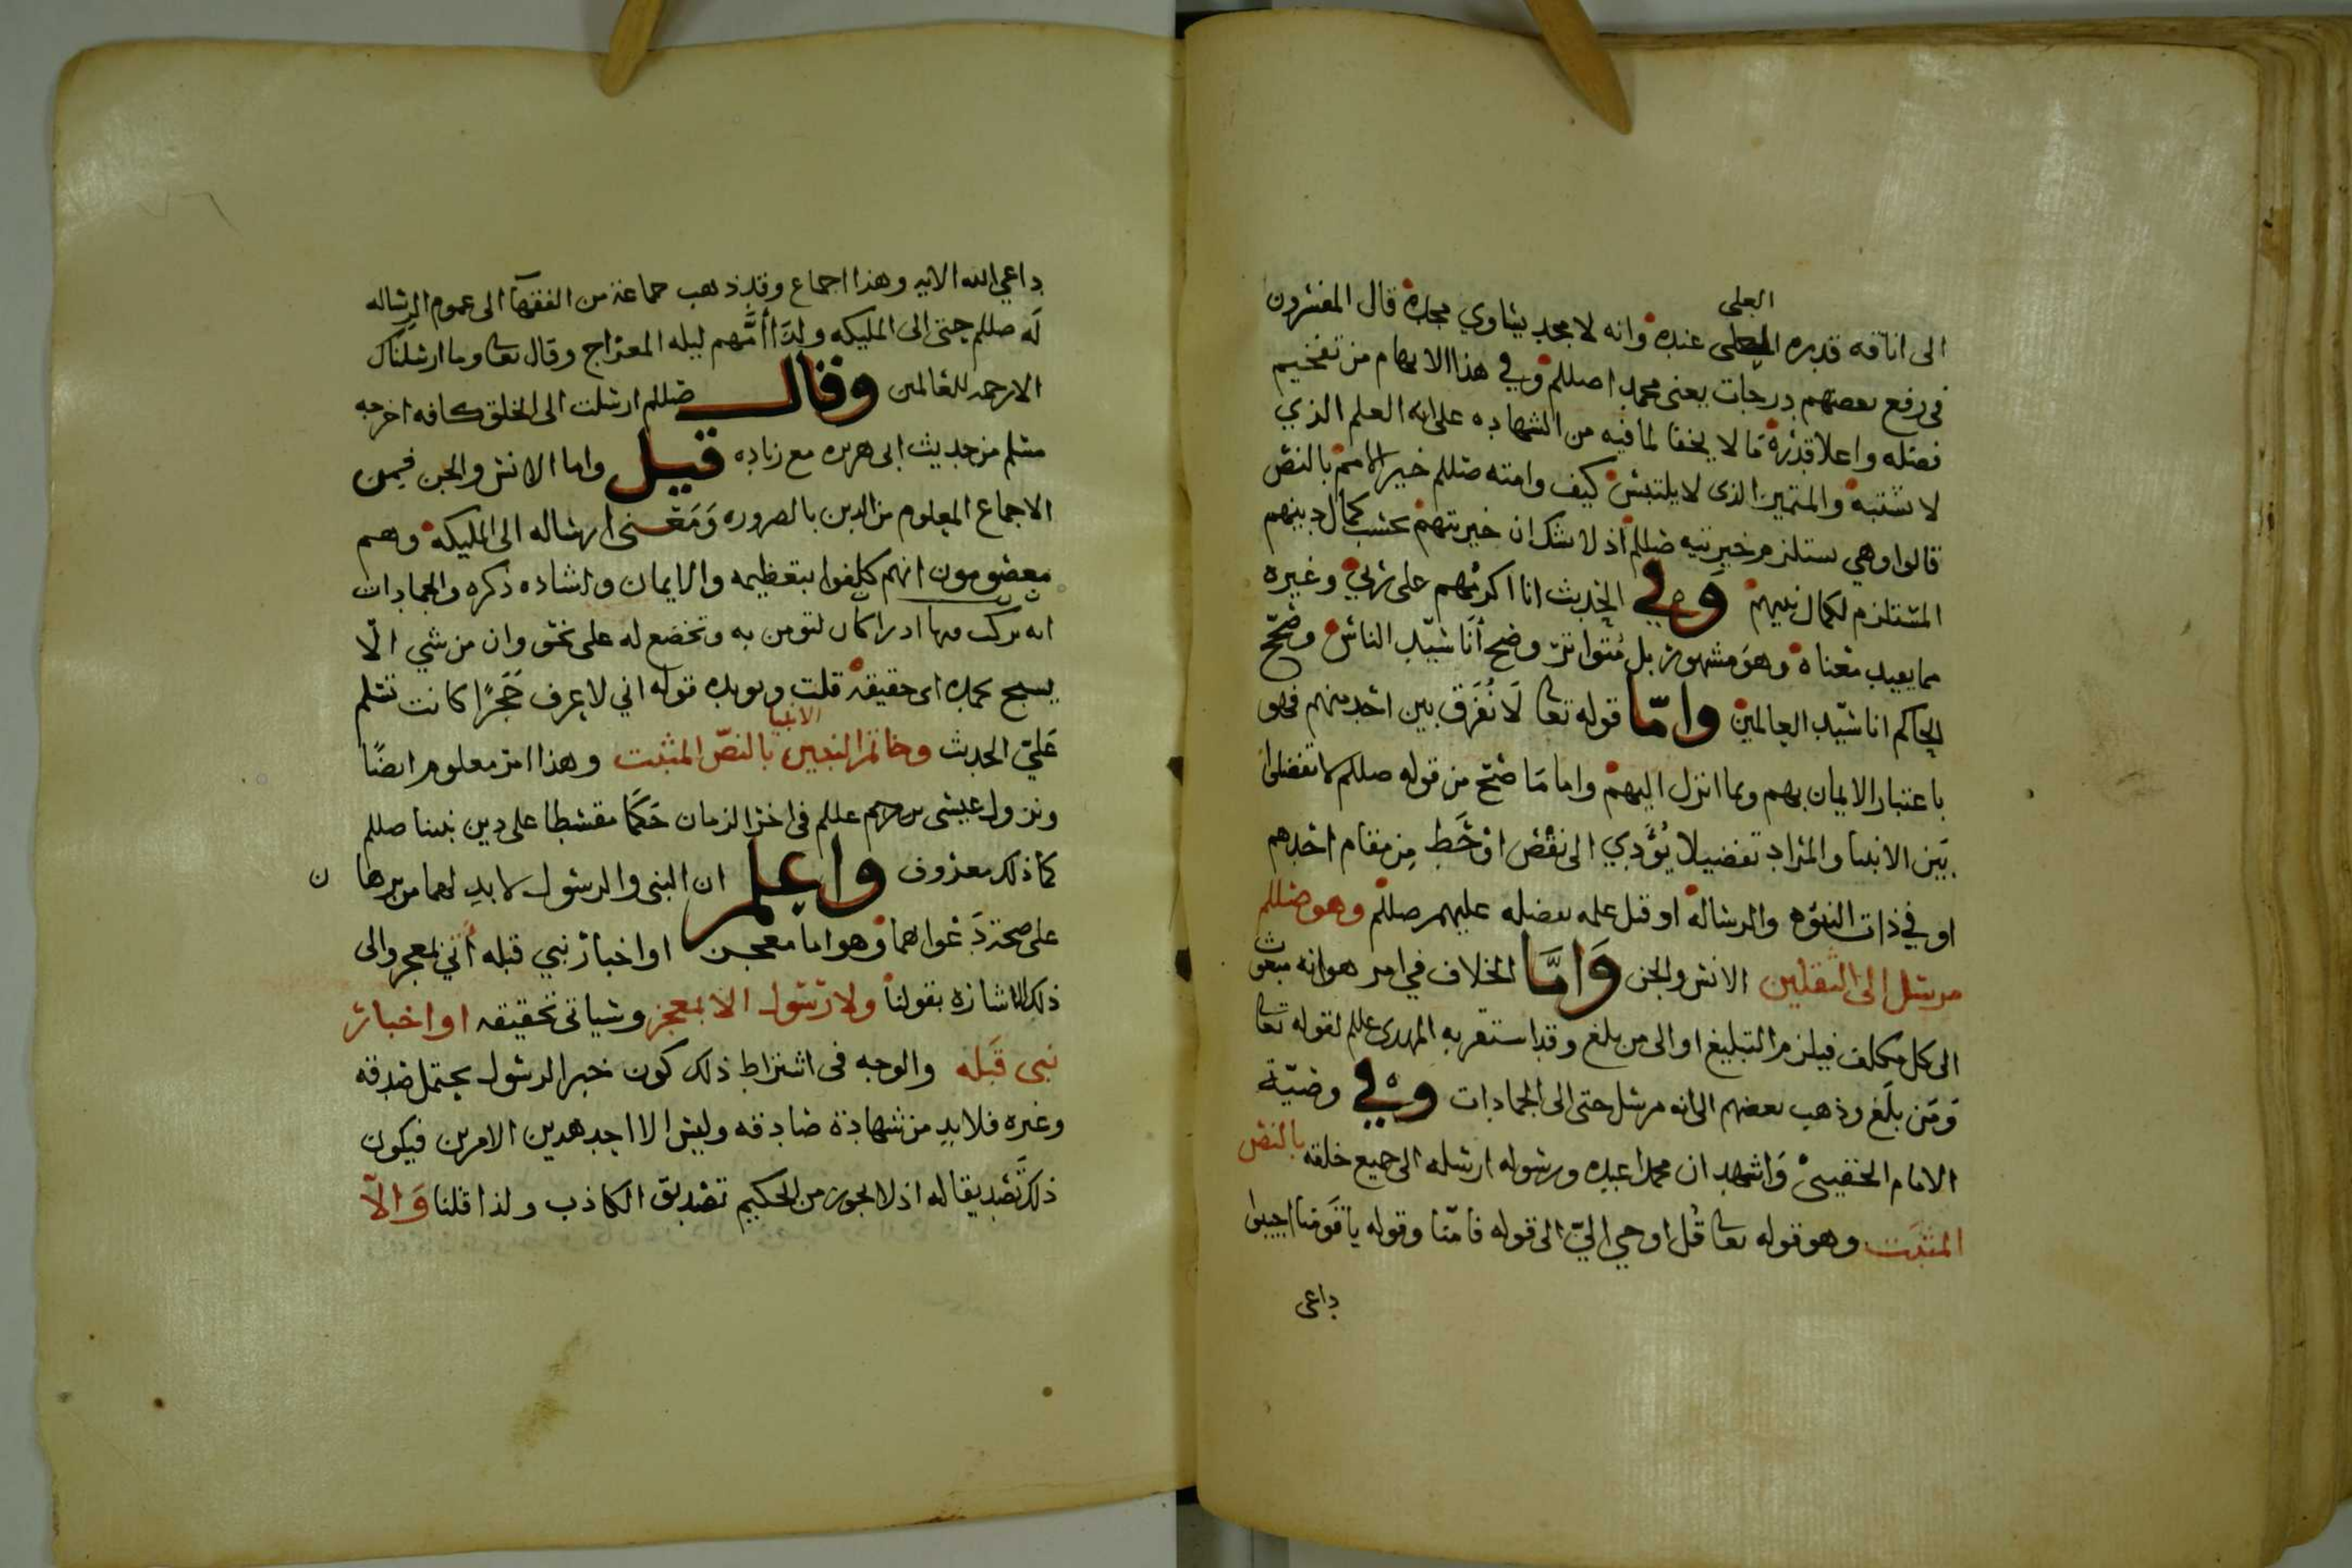 العلى
الى انافه قدره العلى عنده وانه لا مجد يساوي مجده قال المفسرون
فى رفع بعضهم درجات يعنى محمدا صللم وفي هذا الابهام من تفخيم
فضله واعلا قدره مالا يخفا لما فيه من الشهاده على انه العلم الذي
لا يشتبه والمتميز الذى لا يلتبس كيف وامته صللم خير الامم بالنص
قالوا وهي يستلزم خيريته صللم اذ لا شك ان خيريتهم بحسب كمال دينهم
المستلزم لكمال نبيهم وفي الحديث انا اكرمهم على ربي وغيره
مما يفيد معناه وهو مشهور بل متواتر وضح أنا سيد الناس وصحح
الحاكم انا سيد العالمين واما قوله تعا لا نفرق بين احد منهم فهو
باعتبار الايمان بهم وبما انزل اليهم واما ما صح من قوله صللم لا تفضلوا
بين الانبيا والمراد تفضيلا يؤدي الى نقص او حط من مقام احدهم
او في ذات النبوه والرساله او قبل علمه بفضله عليهم صللم وهو صللم
مرسل الى الثقلين الانس والجن وامّا الخلاف في امر هو انه مبعوث
الى كل مكلف فيلزم التبليغ او الى من بلغ وقد استقر به المهدى عللم لقوله تعا
ومن بلغ وذهب بعضهم الى انه مرسل حتى الى الجمادات وفي وصيّة
الامام الحقيني واشهد ان محمدا عبده ورسوله ارسله الى جميع خلقه بالنص
المثبت وهو قوله تعا قل اوحي اليّ الى قوله فامنّا وقوله يا قومنا اجيبوا
داعى
داعي الله الايه وهذا اجماع وقد ذهب جماعة من الفقهآ الى عموم الرساله
له صللم حتى الى المليكه ولذا أمّهم ليله المعراج وقال تعا وما ارسلناك
الا رحمه للعالمين وقال صللم ارسلت الى الخلق كافه اخرجه
مسلم من حديث ابى هريره مع زياده قيل واما الانس والجن فبمن
الاجماع المعلوم من الدين بالضروره ومعنى ارساله الى المليكه وهم
معصومون انهم كلفوا بتعظيمه والايمان واشاده ذكره والجمادات
انه يركب فيها ادراكات لتومن به وتخضع له على نحو وان من شي الّا
يسبح بحمده اى حقيقة قلت ويويده قوله اني لا عرف حجرًا كانت تسلم
عليّ الحديث وخاتم النبيين الانبيا بالنصّ المثبت وهذا امر معلوم ايضًا
ونزول عيسى بن مريم عللم فى اخر الزمان حكما مقسطا على دين نبينا صللم
كما ذلك معروف واعلم ان النبى والرسول لا بد لهما من برها ن
على صحة دعواهما وهو اما معجز او اخبار نبي قبله أتي بمعجز والى
ذلك الاشاره بقولنا ولا رسول الا بمعجز وسياتى تحقيقه او اخبار
نبى قبله والوجه فى اشتراط ذلك كون خبر الرسول يحتمل صدقه
وغيره فلا بد من شهادة صادقه وليس الا احد هدين الامرين فيكون
ذلك تصديقا له اذ لا يجوز من الحكيم تصديق الكاذب ولذا قلنا والّا